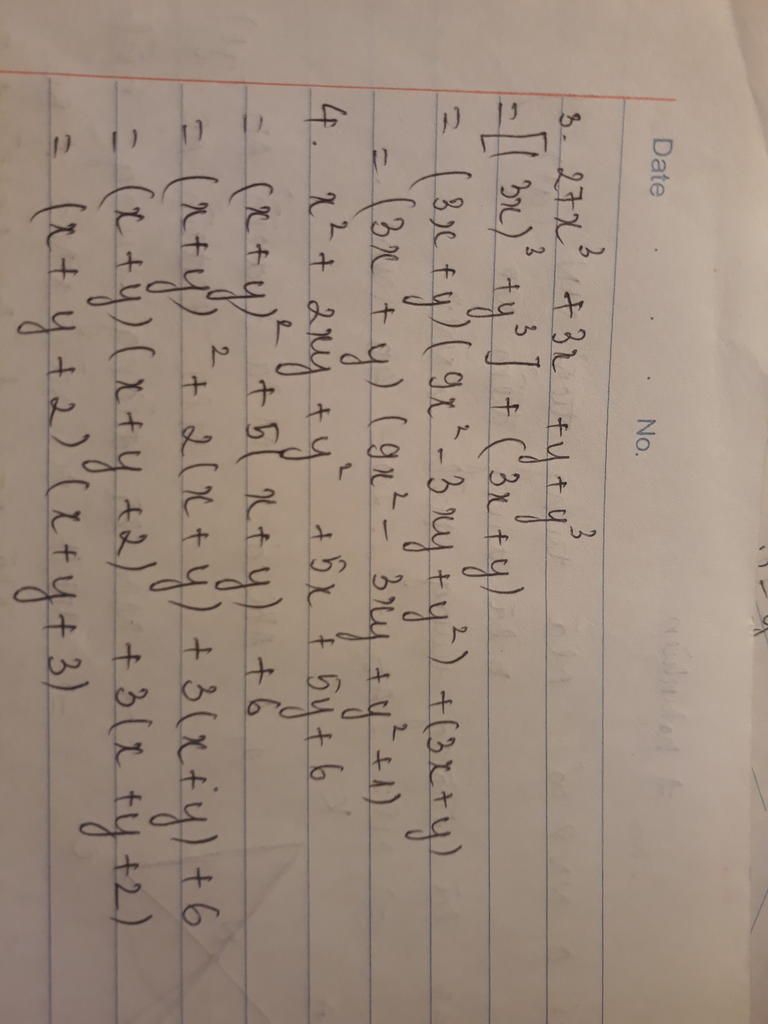 Date . . . No.
3. 27x³ + 3x + y + y³
= [(3x)³ + y³] + (3x + y)
= (3x + y) (9x² - 3xy + y²) + (3x + y)
= (3x + y) (9x² - 3xy + y² + 1)
4. x² + 2xy + y² + 5x + 5y + 6
= (x + y)² + 5(x + y) + 6
= (x + y)² + 2(x + y) + 3(x + y) + 6
= (x + y) (x + y + 2) + 3(x + y + 2)
= (x + y + 2) (x + y + 3)